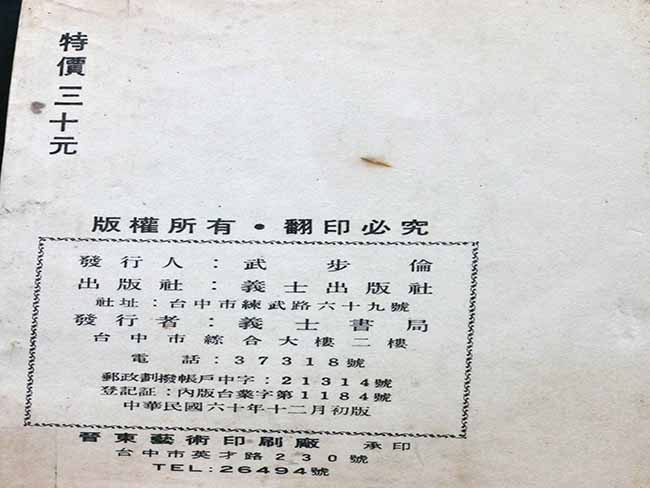 特價三十元
版權所有・翻印必究
發行人：武步倫
出版社：義士出版社
社址：台中市練武路六十九號
發行者：義士書局
台中市綜合大樓二樓
電話：37318號
郵政劃撥帳戶中字：21314號
登記証：內版台業字第1184號
中華民國六十年十二月初版
晉東藝術印刷廠 承印
台中市英才路230號
TEL:26494號